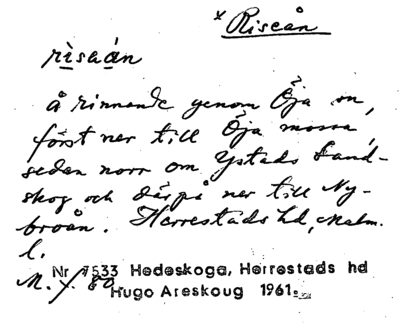 x Riseån
rìsaán
å rinnande genom Öja sn,
först ner till Öja mossa,
sedan norr om Ystads Sand-
skog och därpå ner till Ny-
broån. Herrestads hd, Malm.
l.
Nr 7533 Hedeskoga, Herrestads hd
M. f. 80.
Hugo Areskoug 1961.